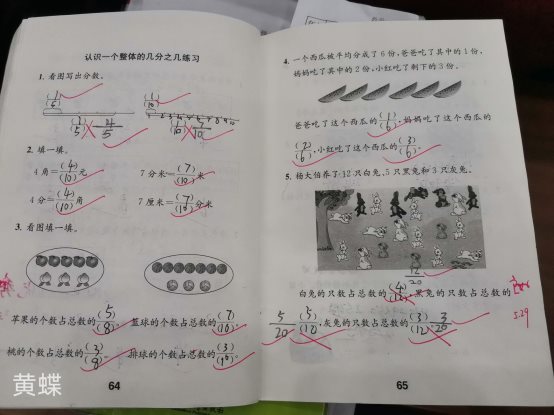 认识一个整体的几分之几练习
1. 看图写出分数。
(1)/(5)
(1)/(10)
1 2 3 4 5 6 7 8 9 10
(1)/(5) 4/5
(1)/(10) 7/10
2. 填一填。
4角=(4)/(10)元
7分米=(7)/(10)米
4分=(4)/(10)角
7厘米=(7)/(10)分米
3. 看图填一填。
苹果的个数占总数的(5)/(8)。
篮球的个数占总数的(7)/(10)。
桃的个数占总数的(3)/(8)。
排球的个数占总数的(3)/(10)。
64
4. 一个西瓜被平均分成了6份,爸爸吃了其中的1份,
妈妈吃了其中的2份,小红吃了剩下的3份。
爸爸吃了这个西瓜的(1)/(6),妈妈吃了这个西瓜的
(2)/(6),小红吃了这个西瓜的(3)/(6)。
5. 杨大伯养了12只白兔,5只黑兔和3只灰兔。
12/20
白兔的只数占总数的
黑兔的只数占总数的
5/20
灰兔的只数占总数的(3)/(12) 3/20
5.29
65
黄蝶